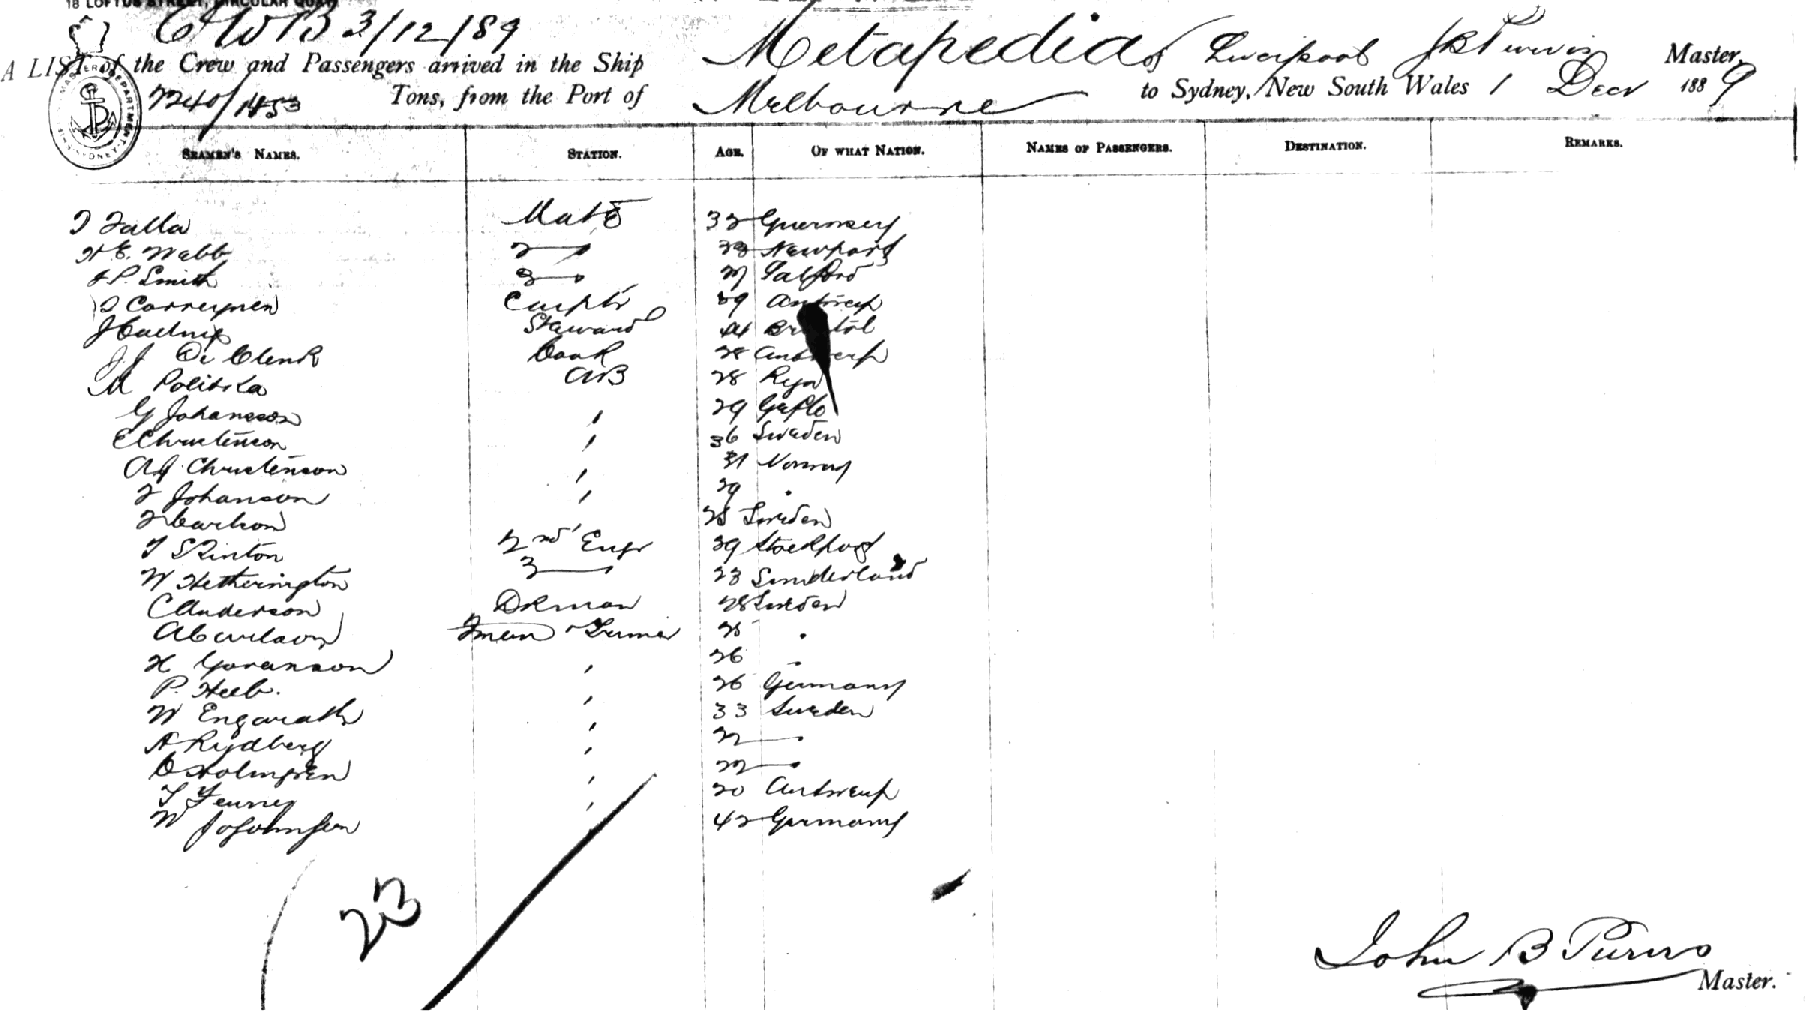 18 LOFTUS STREET, CIRCULAR QUAY
3/12/89
A LIST of the Crew and Passengers arrived in the Ship Metapedia of Liverpool J B Purvis Master,
Tons, from the Port of Melbourne to Sydney, New South Wales 1 Decr 1889
SEAMEN'S NAMES. STATION. AGE. OF WHAT NATION. NAMES OF PASSENGERS. DESTINATION. REMARKS.
Falla Mate 32 Guernsey
H E. Webb 2 Newport
P. Smith 3
Carptr 39 Antwerp
Steward 44 Bristol
J. J De Clerk Cook Antwerp
M Politika AB 28
G Johansson 29 Gefle
C Christenson 36 Sweden
A J Christenson 31 Norway
Johanson 29
Carlson 25 Sweden
T Skinton 2nd Engr 29 Stockport
W Hetherington 3 23 Sunderland
C Anderson Dkman 28 Sweden
A Carlson Fman & Trimmer 25
H Goranson 26
P. Heeb. 26 Germany
W Engwrath 33 Sweden
A Rydberg 22
O Holmgren 22
20 Antwerp
W 42 Germany
23
John B Purvis
Master.